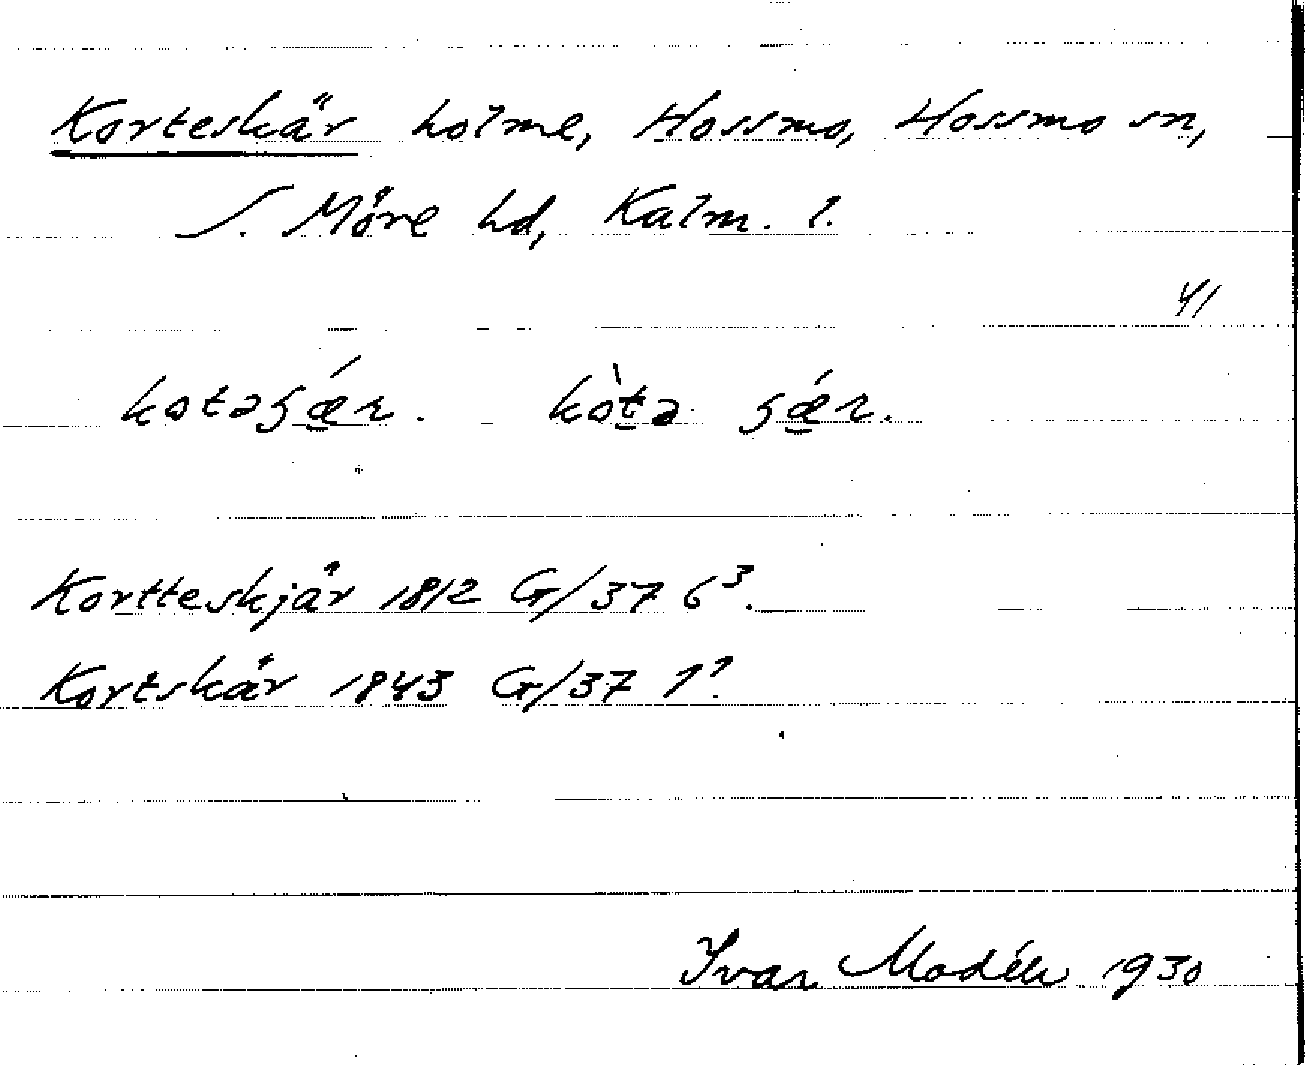 Korteskär holme, Hossmo, Hossmo sn,
S. Möre hd, Kalm. l.
kotəʂǽr. kòtə ʂǽr.
Kortteskjär 1812 G/37 6³.
Kortskär 1843 G/37 1¹.
Ivar Modéer 1930